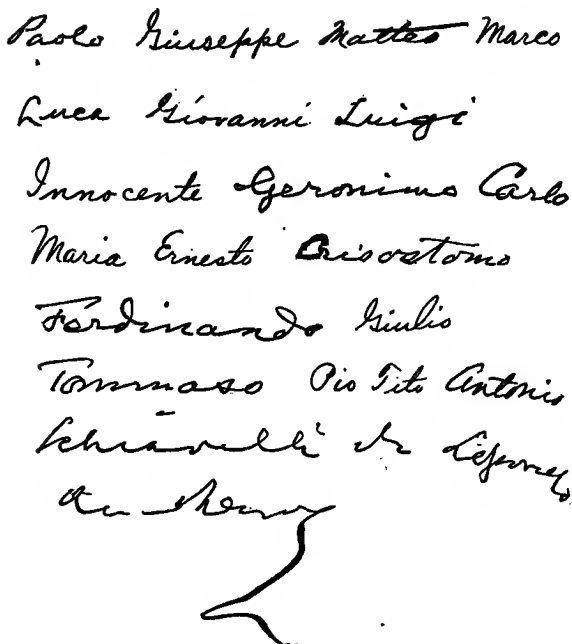 Paolo Giuseppe Matteo Marco
Luca Giovanni Luigi
Innocente Geronimo Carlo
Maria Ernesto Crisostomo
Ferdinando Giulio
Tommaso Pio Tito Antonio
Schiavelli di